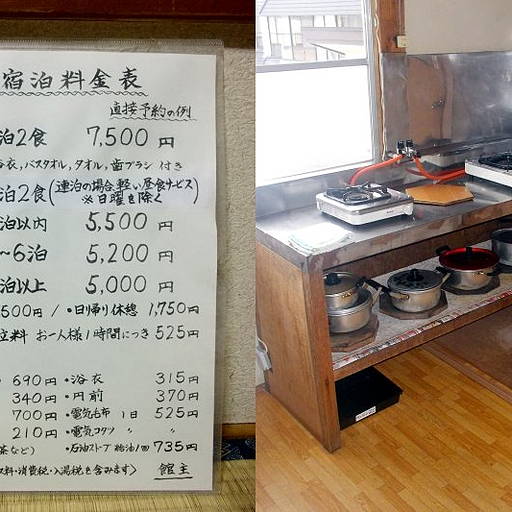 宿泊料金表
直接予約の例
泊2食 7,500円
浴衣,バスタオル,タオル,歯ブラシ 付き
泊2食(連泊の場合軽い昼食サービス ※日曜を除く)
泊以内 5,500円
~6泊 5,200円
泊以上 5,000円
500円 / ・日帰り休憩 1,750円
立料 お一人様1時間につき 525円
690円 ・浴衣 315円
340円 ・丹前 370円
700円 ・電気毛布 1日 525円
210円 ・電気コタツ 〃 〃
茶など) ・石油ストーブ 給油1回 735円
料・消費税・入湯税を含みます〉 館主